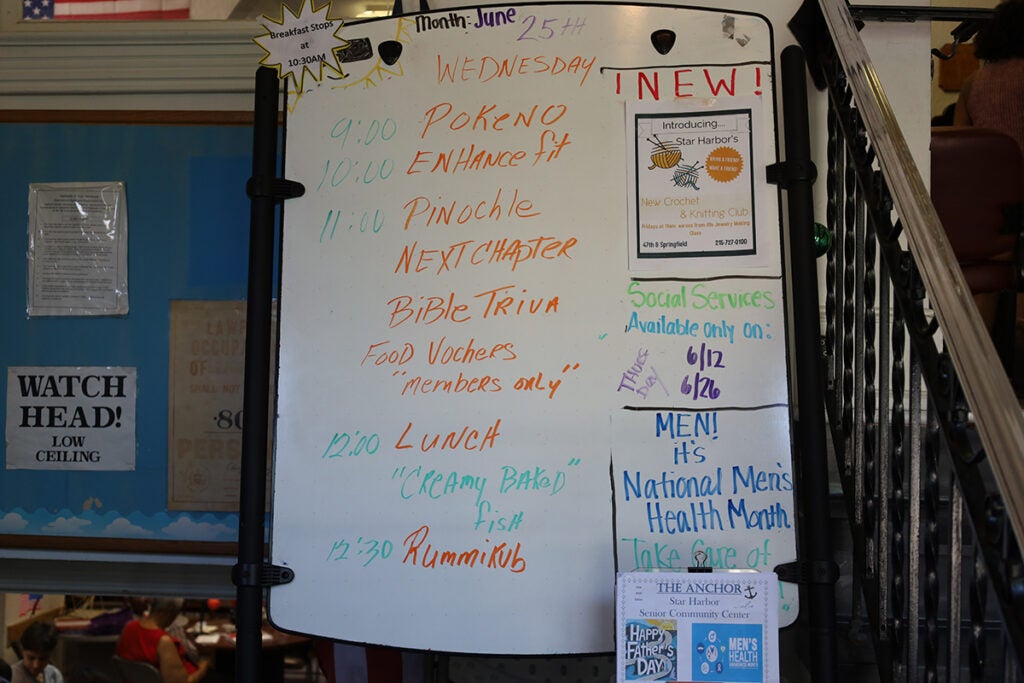 Breakfast Stops
at
10:30AM
Month: June 25TH
WEDNESDAY
9:00 POKENO
10:00 ENHANCE fit
11:00 PiNOCHLE
NEXT CHAPTER
BiBLE TRIVA
FOOD VOCHERS
"members only"
12:00 LUNCH
"CREAMY BAKED"
fisH
12:30 RummiKUB
! NEW !
Introducing....
Star Harbor's
BRING A FRIEND
MAKE A FRIEND
New Crochet
& Knitting Club
Class
47th & Springfield 215-727-0100
Social Services
Available only on:
THURSDAY
6/12
6/26
MEN!
it's
National Men's
Health Month
Take Care of
THE ANCHOR
Star Harbor
Senior Community Center
HAPPY
Father's
DAY!
MEN'S
HEALTH
AWARENESS MONTH
WATCH
HEAD!
LOW
CEILING
80